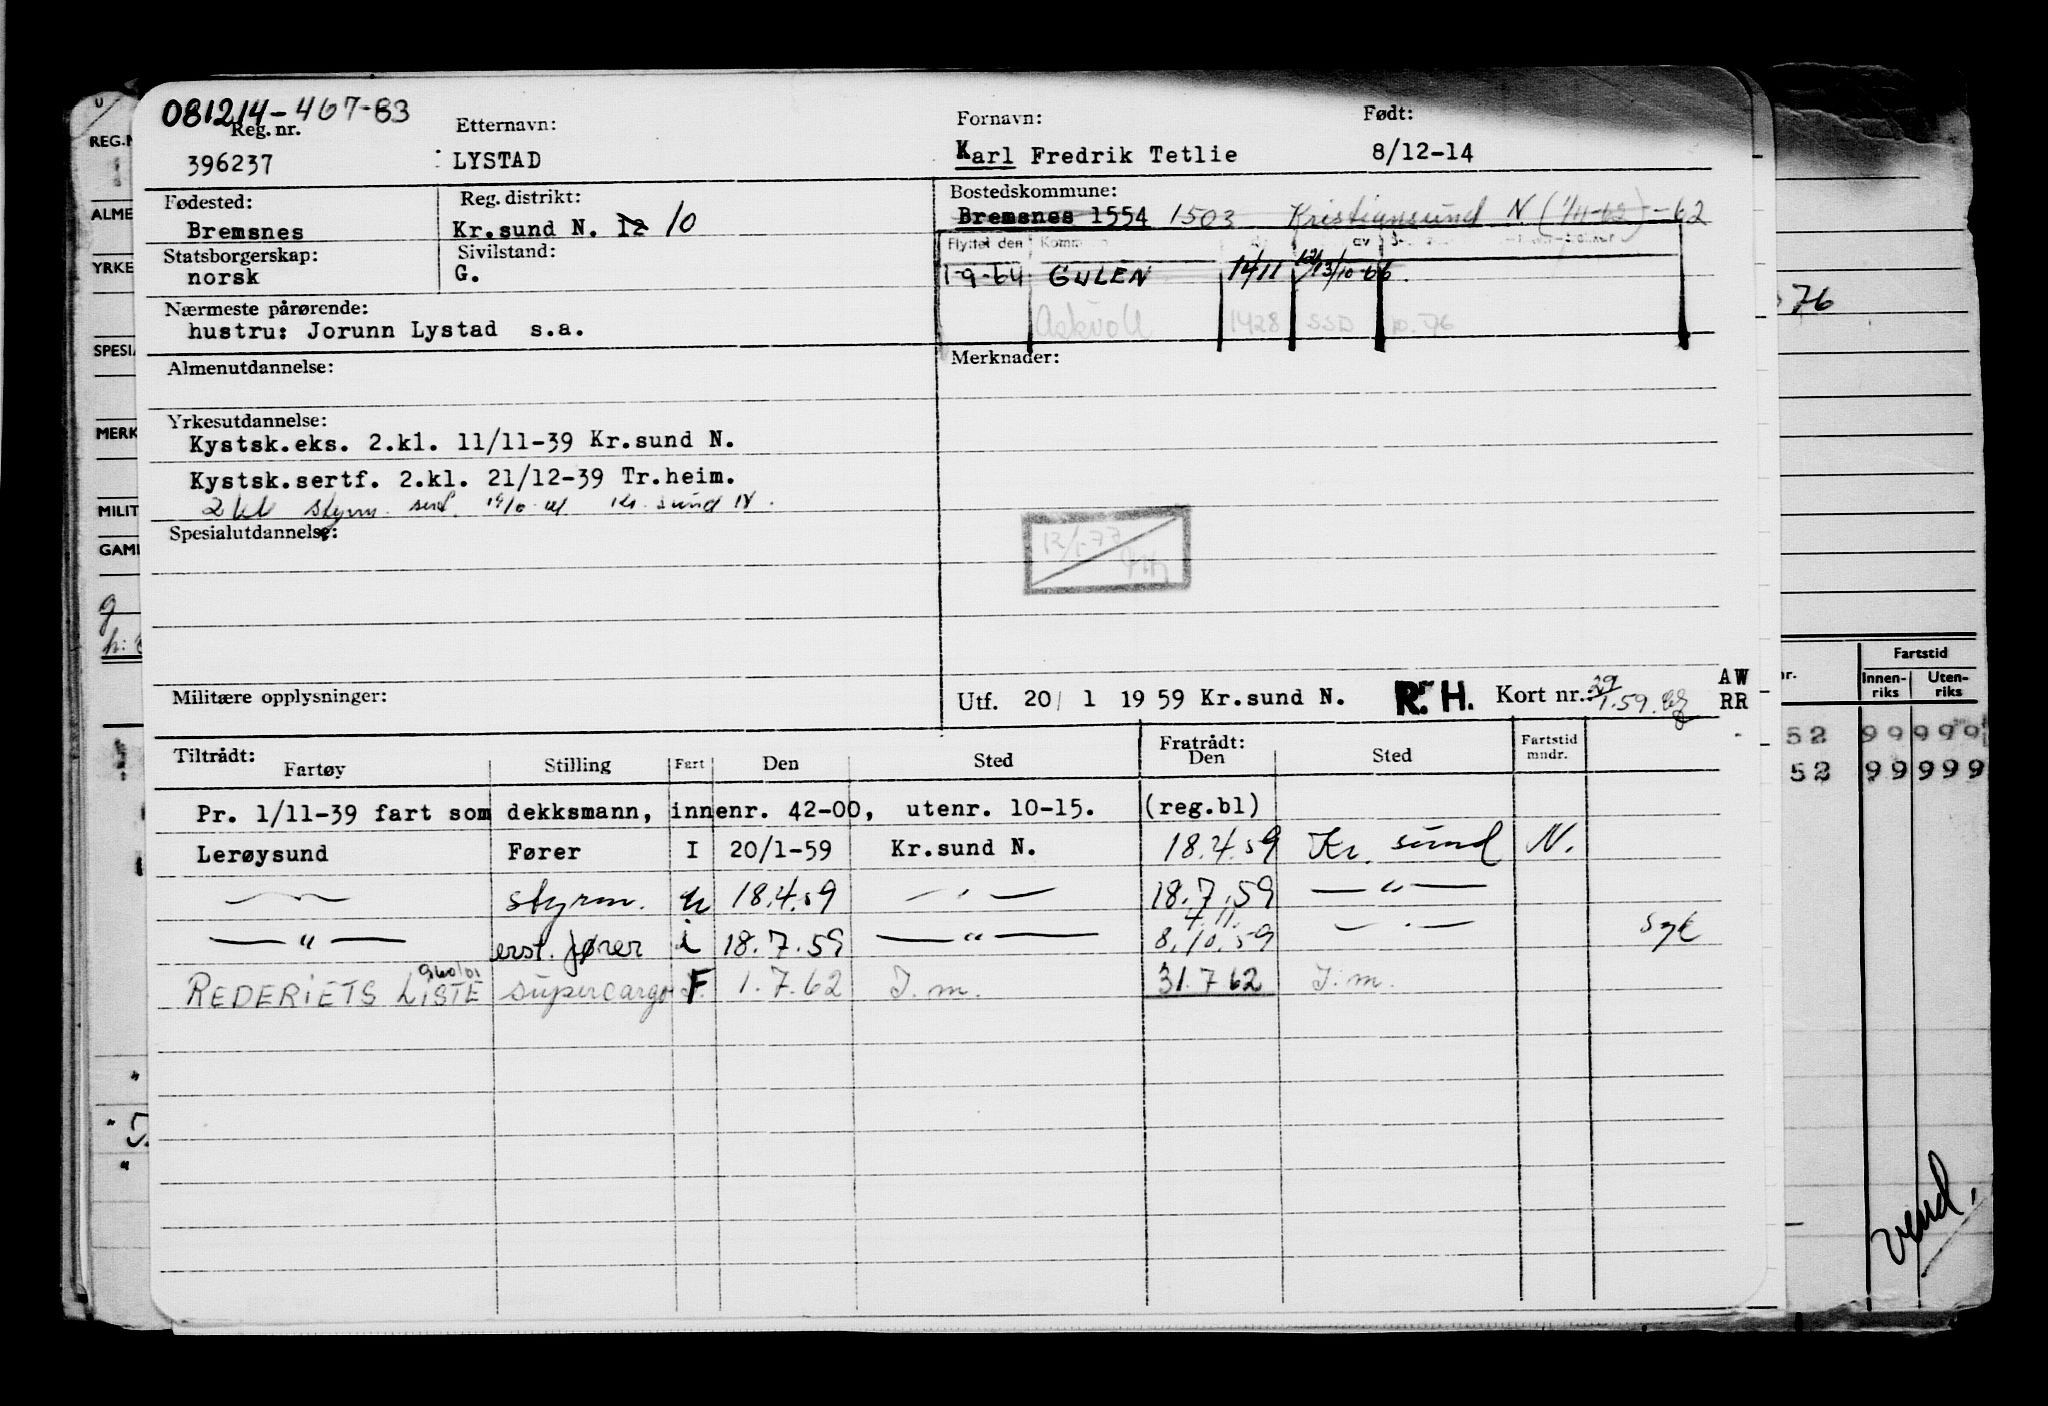 081214-467-83
Reg. nr. Etternavn: Fornavn: Født:
396237 LYSTAD Karl Fredrik Tetlie 8/12-14
Fødested: Reg. distrikt: Bostedskommune:
Bremsnes Kr.sund N. 12 10 Bremsnes 1554 1503 Kristiansund N -62
Statsborgerskap: Sivilstand: Flyttet den
norsk G. 1-9-64 GULEN 1411 13/10-66
Nærmeste pårørende:
hustru: Jorunn Lystad s.a. Askvoll 1428 SSD 10.76
Almenutdannelse: Merknader:
Yrkesutdannelse:
Kystsk.eks. 2.kl. 11/11-39 Kr.sund N.
Kystsk.sertf. 2.kl. 21/12-39 Tr.heim.
2 kl styrm. Kr. sund N.
Spesialutdannelse:
12/1-77
Militære opplysninger: Utf. 20/ 1 1959 Kr.sund N. R. H. Kort nr. AW
RR
Tiltrådt: Fratrådt:
Fartøy Stilling Fart Den Sted Den Sted Fartstid mndr.
Pr. 1/11-39 fart som dekksmann, innenr. 42-00, utenr. 10-15. (reg.bl)
Lerøysund Fører I 20/1-59 Kr.sund N. 18.4.59 Kr. sund N.
styrm. 18.4.59 18.7.59 — " —
4.11.
— " — erst. fører i 18.7.59 — " — 8.10.59 Syk
REDERIETS LISTE supercargo F 1.7.62 I.m. 31.7 62 I.m.
REG.N
ALME
YRKE
SPESI
MERK
MILIT
GAM
76
Fartstid
Innen-riks Uten-riks
52 99 999
52 99 999
vend.